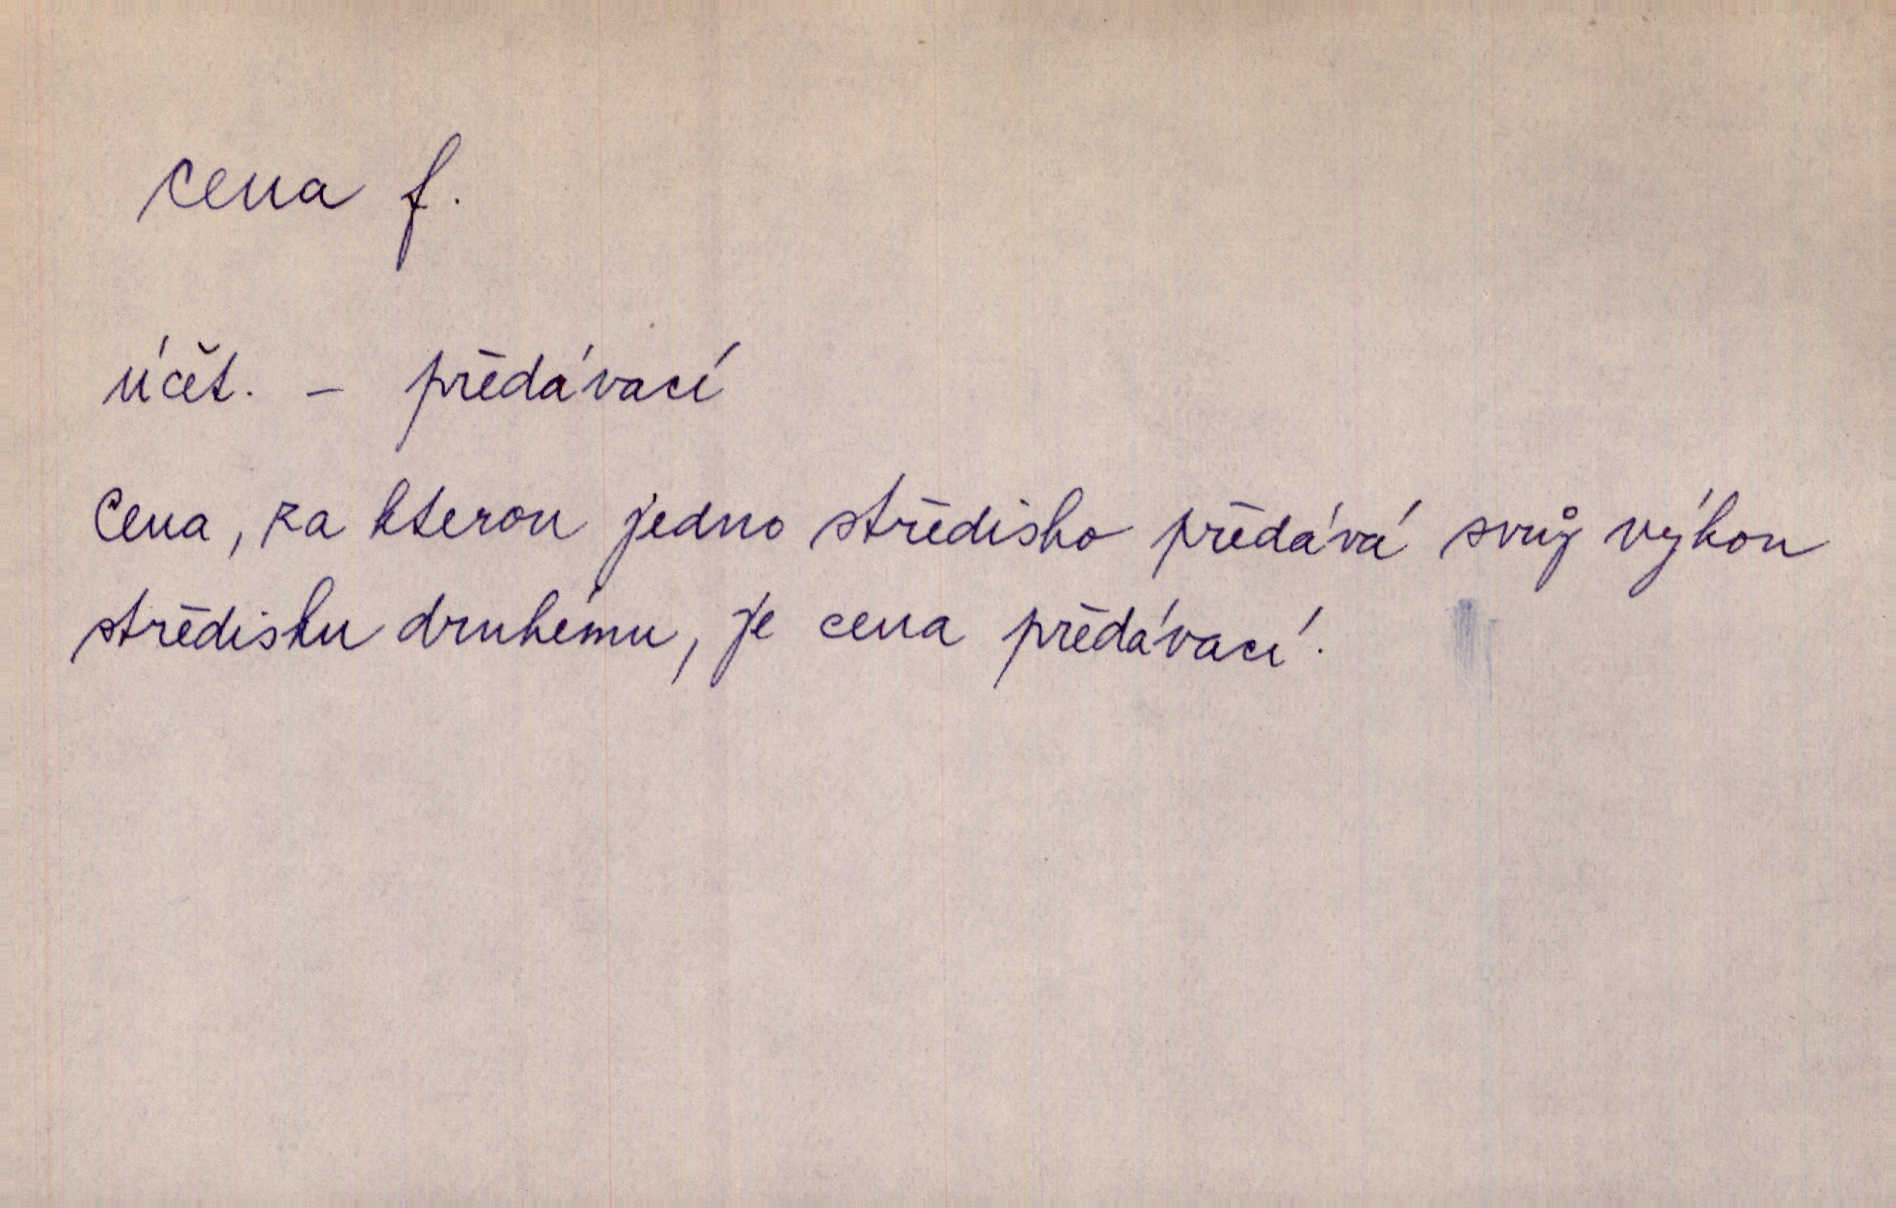 cena f.
účět. - předávací
Cena, za kterou jedno středisko předává svůj výkon
středisku druhému, je cena předávací.